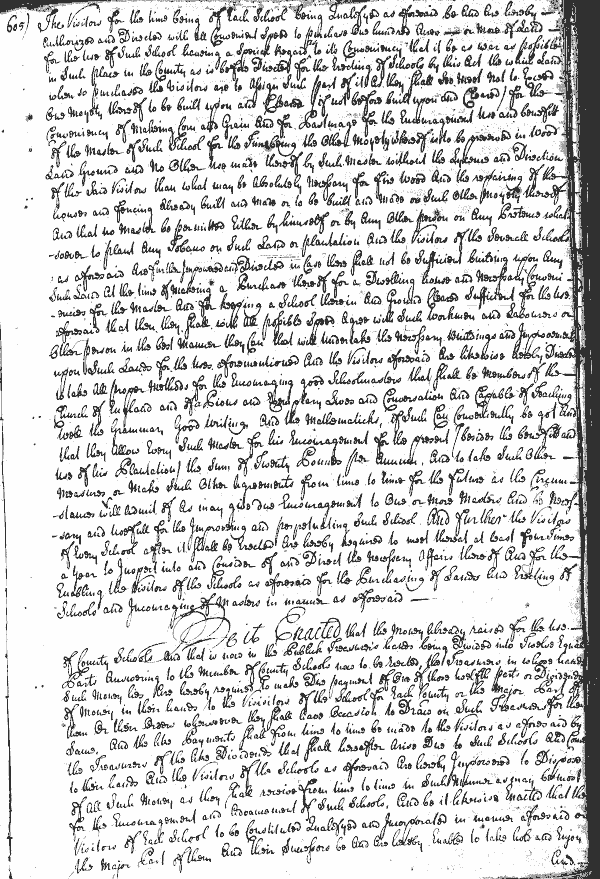 605) The Visitors for the time being of Each School being Qualifyed as aforesaid be And Are hereby
Authorized and Directed with all Convenient Speed to purchase One hundred Acres or more of Land
for the Use of Such School having a Special Regard to its Conveniency that it be as near as possible
in Such place in the County as is before Directed for the Erecting of Schools by this Act the which Land
when so purchased the Visitors are to Assign Such part of it As they shall see meet not to Exceed
One Moyety thereof to be built upon and Cleared / if not before built upon and Cleared / for the
Conveniency of Making Corn and Grain And for Pasturage for the Encouragement Use and benefitt
of the Master of Such School for the Time being the Other Moyety thereof is to be preserved in Wood
Land Ground and No Other Use made thereof by Such Master without the Lycense and Direction
of the Said Visitors than what may be Absolutely Necessary for fire Wood And the repairing of the
houses and fencing Already built and Made or to be built and Made on Such Other Moyety thereof
And that no Master be permitted Either by himself or by Any Other person on Any Pretence what
-soever to plant Any Tobacco on Such Land or plantation And the Visitors of the Severall Schools
as aforesaid Are further Impowered and Directed in Case there shall not be Sufficient building upon Any
Such Land At the time of Making a Purchase thereof for a Dwelling house and Necessary Conveni
-encies for the Master And for keeping a School therein And Ground Cleared Sufficient for the Use
aforesaid that then they shall with all possible Speed Agree with Such Workmen and Labourers or
Other person in the best Manner they Can that will undertake the Necessary buildings and Improvement
upon Such Lands for the Uses aforementioned And the Visitors aforesaid Are likewise hereby Directed
to take All proper Methods for the Encouraging good Schoolmasters that shall be Members of the
Church of England and of Pious and Exemplary Lives and Conversation And Capable of Teaching
well the Grammar, Good Writing, And the Mathematicks, if Such Can Conveniently be got And
that they Allow Every Such Master for his Encouragement for the present / besides the benefit and
Use of his Plantation / the Sum of Twenty Pounds per Annum, And to take Such Other
Measures, or Make Such Other Agreements from time to time for the future as the Circum
-stances will admit of As may give due Encouragement to One or More Masters And be Neces-
-sary and Usefull for the Improving and perpetuating Such School And further the Visitors
of Every School after it shall be Erected Are hereby required to meet thereat at Least four times
a Year to Inspect into and Consider of and Direct the Necessary Affairs thereof And for the
Enabling the Visitors of the Schools as aforesaid for the Purchasing of Lands And Erecting of
Schools and Incouraging of Masters in manner as aforesaid
Be it Enacted that the Money Already raised for the Use
of County Schools And that is now in the Publick Treasurers hands being Divided into Twelve Equal
Parts Answering to the Number of County Schools now to be Erected, the Treasurers in whose hands
Such Money lies Are hereby required to make Due payment of One of those twelfth parts or Dividends
of Money in their hands to the Visitors of the School for Each County or the Major Part of
them Or their Order whensoever they shall have Occasion to Draw on Such Treasurers for the
Same, And the like Payments shall from time to time be made to the Visitors as aforesaid by
the Treasurers of the like Dividends that shall hereafter Arise Due to Such Schools And Come
to their hands And the Visitors of the Schools as aforesaid Are hereby Impowered to Dispose
of All Such Money as they shall receive from time to time in Such Manner as may be most
for the Encouragement and Advancement of Such Schools, And be it likewise Enacted that the
Visitors of Each School to be Constituted Qualifyed and Incorporated in manner aforesaid or
the Major Part of them And their Successors be And Are hereby Enabled to take hold and Enjoy
And